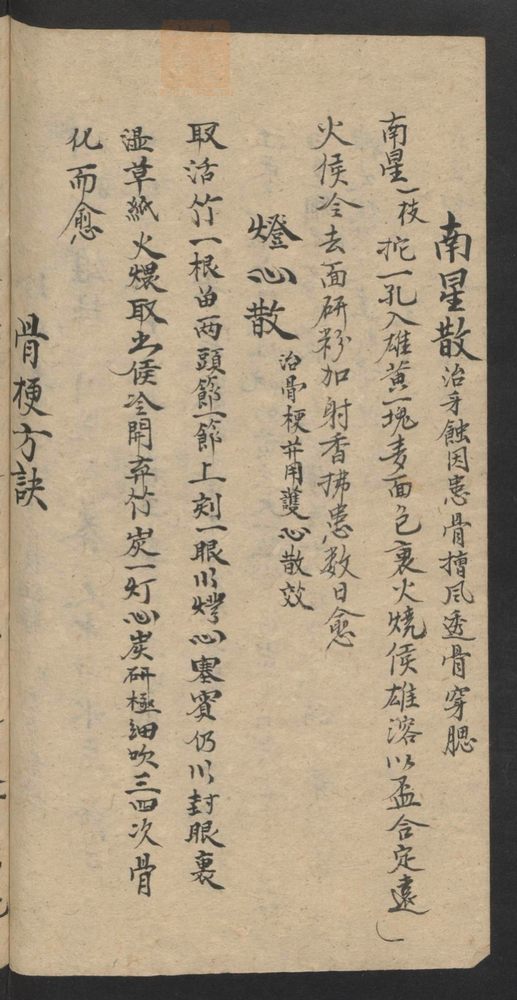 南星散 治牙蝕因患骨擋風透骨穿腮
南星一枝挖一孔入雄黃一塊麥面包裹火燒侯雄溶以盃合定遠
火侯冷去面研粉加射香拂患數日愈
燈心散 治骨梗并用護心散效
取活竹一根留两頭節一節上刻一眼以燈心塞實仍以封眼裏
湿草紙火煨取出侯冷開弃竹炭一灯心炭研極細吹三四次骨
化而愈
骨梗方訣